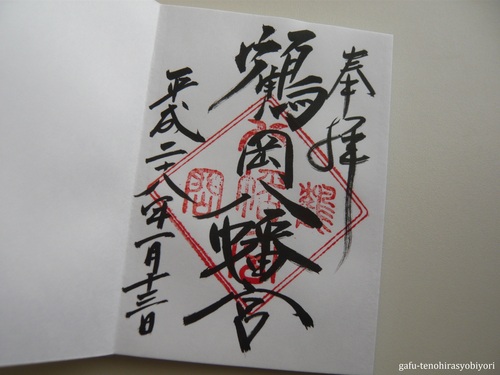 奉拝
鶴岡八幡宮
平成二十八年一月十三日
gafu-tenohirasyobiyori